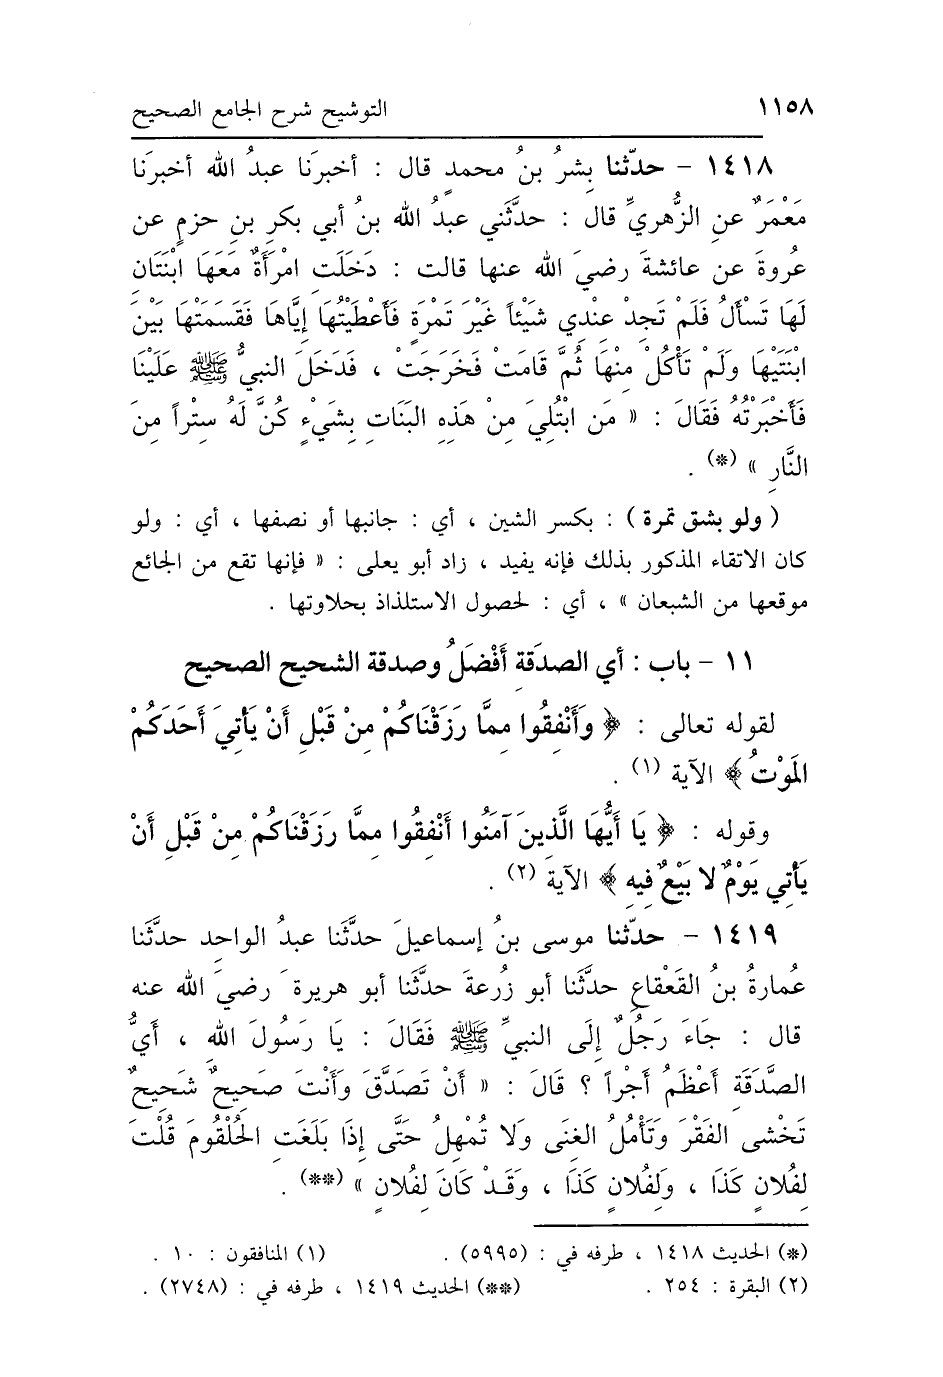 ١١٥٨ التوشيح شرح الجامع الصحيح
١٤١٨ - حدّثنا بشرُ بنُ محمدٍ قال : أخبرَنا عبدُ الله أخبرَنا
مَعْمَرٌ عنِ الزُّهريِّ قال : حدَّثَني عبدُ الله بنُ أبي بكرِ بنِ حزمٍ عن
عُروةَ عن عائشةَ رضيَ الله عنها قالت : دَخَلَتِ امْرَأَةٌ مَعَهَا ابْنَتَانِ
لَهَا تَسْأَلُ فَلَمْ تَجِدْ عِنْدِي شَيْئاً غَيْرَ تَمْرَةٍ فَأَعْطَيْتُهَا إِيَّاهَا فَقَسَمَتْهَا بَيْنَ
ابْنَتَيْهَا وَلَمْ تَأْكُلْ مِنْهَا ثُمَّ قَامَتْ فَخَرَجَتْ ، فَدَخَلَ النبيُّ ﷺ عَلَيْنَا
فَأَخْبَرْتُهُ فَقَالَ : « مَن ابْتُلِيَ مِنْ هَذِهِ البَنَاتِ بِشَيْءٍ كُنَّ لَهُ سِتْراً مِنَ
النَّارِ » (*) .
( ولو بشق تمرة ) : بكسر الشين ، أي : جانبها أو نصفها ، أي : ولو
كان الاتقاء المذكور بذلك فإنه يفيد ، زاد أبو يعلى : « فإنها تقع من الجائع
موقعها من الشبعان » ، أي : لحصول الاستلذاذ بحلاوتها .
١١ - باب : أي الصدَقة أَفْضَلُ وصدقة الشحيح الصحيح
لقوله تعالى : ﴿ وَأَنْفِقُوا مِمَّا رَزَقْنَاكُمْ مِنْ قَبْلِ أَنْ يَأْتِيَ أَحَدَكُمْ
المَوْتُ ﴾ الآية (١) .
وقوله : ﴿ يَا أَيُّهَا الَّذِينَ آمَنُوا أَنْفِقُوا مِمَّا رَزَقْنَاكُمْ مِنْ قَبْلِ أَنْ
يَأْتِي يَوْمٌ لا بَيْعٌ فِيهِ ﴾ الآية (٢) .
١٤١٩ - حدّثنا موسى بنُ إسماعيلَ حدَّثَنا عبدُ الواحدِ حدَّثَنا
عُمارةُ بنُ القَعْقاعِ حدَّثَنا أبو زُرعةَ حدَّثَنا أبو هريرة َ رضيَ الله عنه
قال : جَاءَ رَجُلٌ إِلَى النبيِّ ﷺ فَقَالَ : يَا رَسُولَ اللهِ ، أَيُّ
الصَّدَقَةِ أَعْظَمُ أَجْراً ؟ قَالَ : « أَنْ تَصَدَّقَ وَأَنْتَ صَحِيحٌ شَحِيحٌ
تَخْشى الفَقْرَ وَتَأْمُلُ الغِنَى وَلا تُمْهِلُ حَتَّى إِذَا بَلَغَتِ الحُلْقُومَ قُلْتَ
لِفُلانٍ كَذَا ، وَلِفُلانٍ كَذَا ، وَقَدْ كَانَ لِفُلانٍ » (**) .
(*) الحديث ١٤١٨ ، طرفه في : (٥٩٩٥) . (١) المنافقون : ١٠ .
(٢) البقرة : ٢٥٤ . (**) الحديث ١٤١٩ ، طرفه في : (٢٧٤٨) .